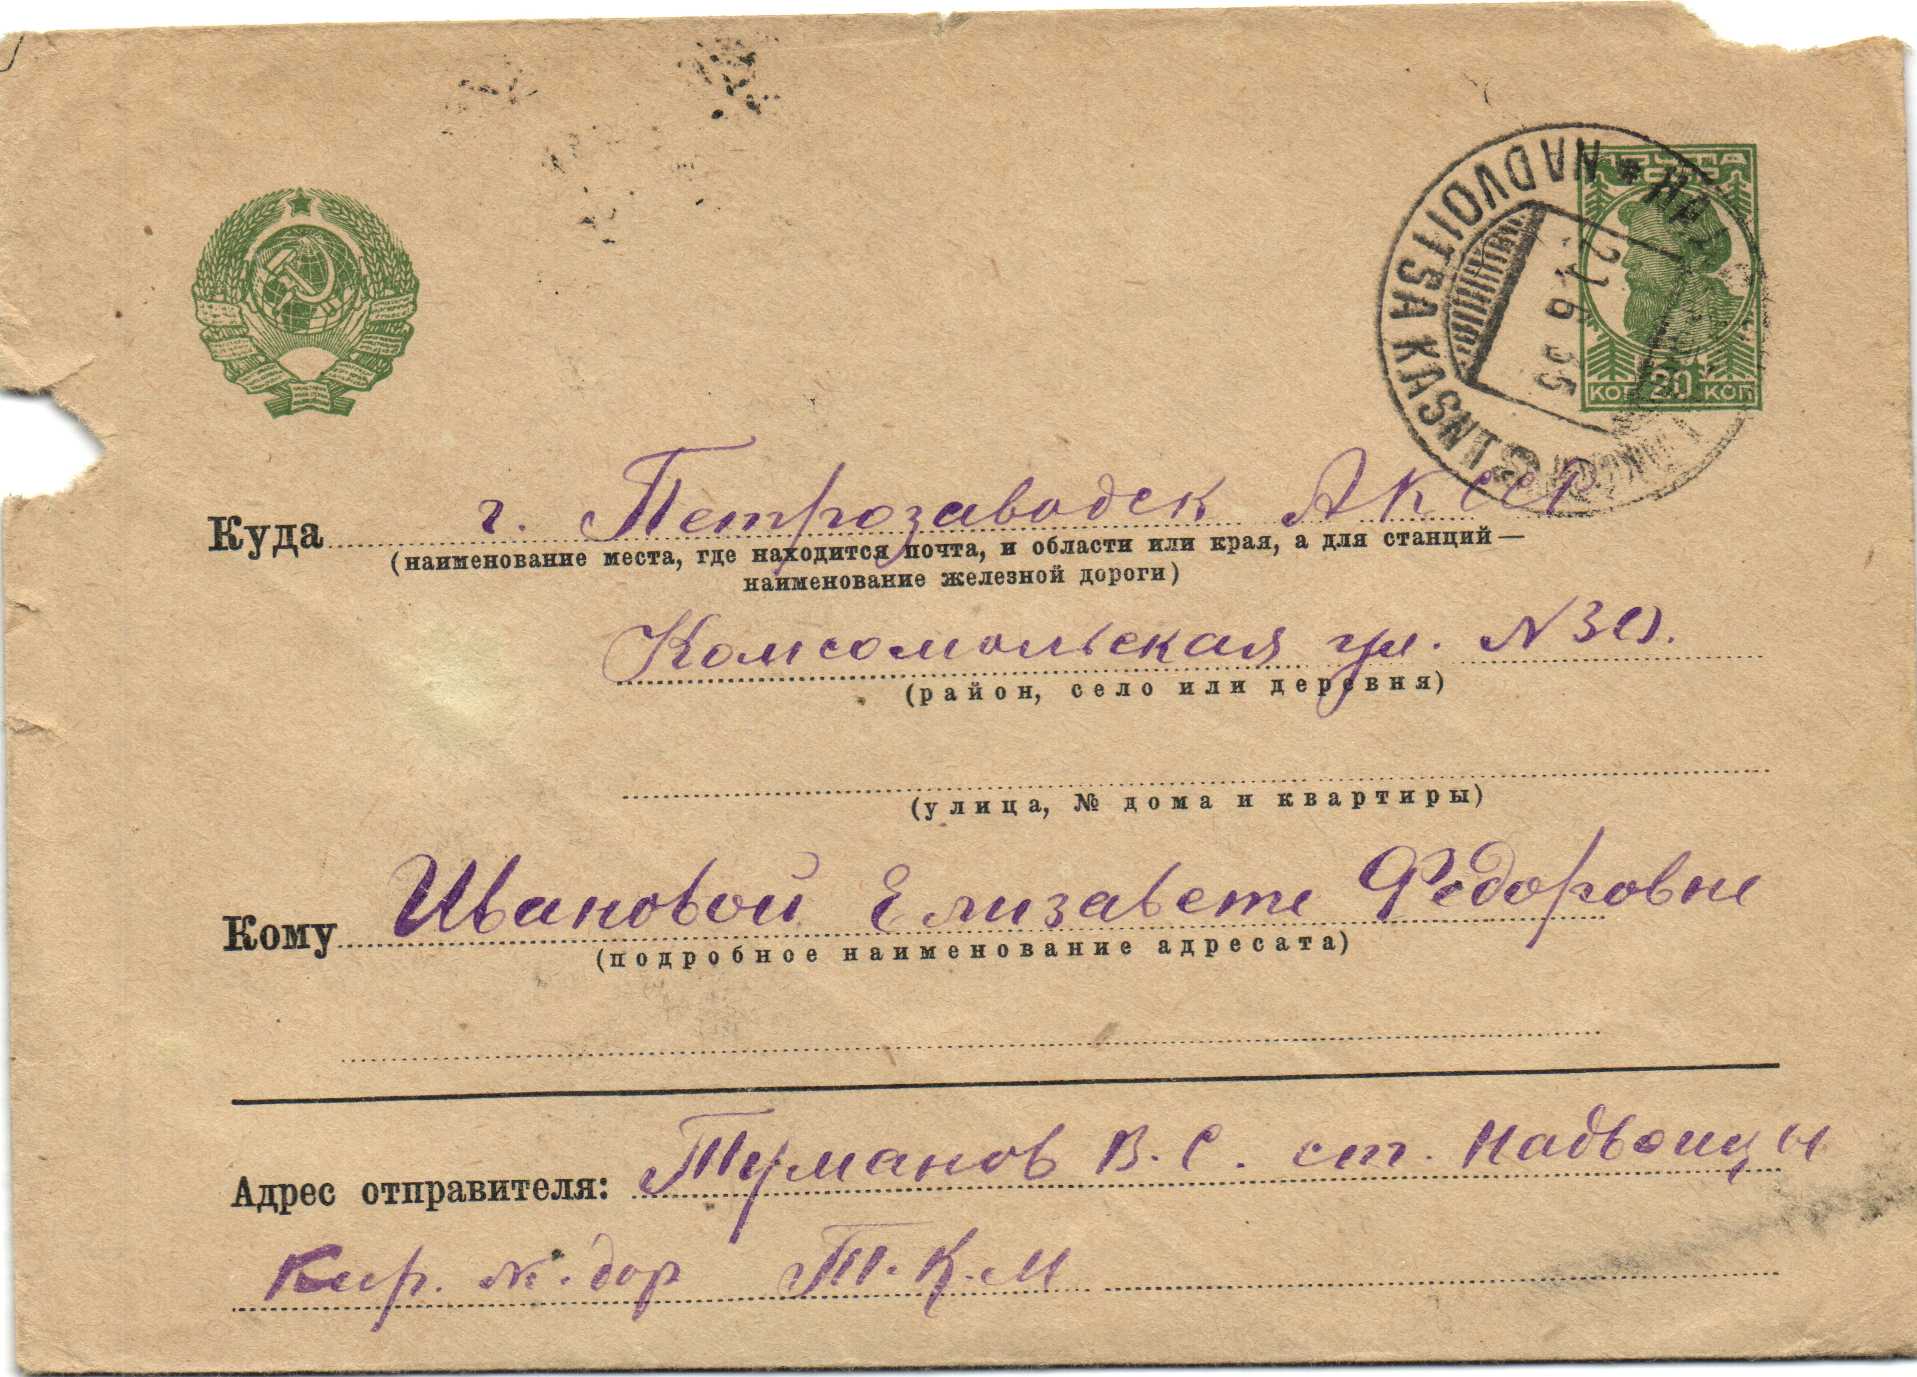 ПОЧТА
СССР
NADVOITSA KASNT
21 6 35
КОП 20 КОП
Куда г. Петрозаводск АКССР
(наименование места, где находится почта, и области или края, а для станций—
наименование железной дороги)
Комсомольская ул. № 30.
(район, село или деревня)
(улица, № дома и квартиры)
Кому Ивановой Елизавете Федоровне
(подробное наименование адресата)
Адрес отправителя: Туманов В. С. ст. Надвоицы
Кир. ж. дор Т. К. М